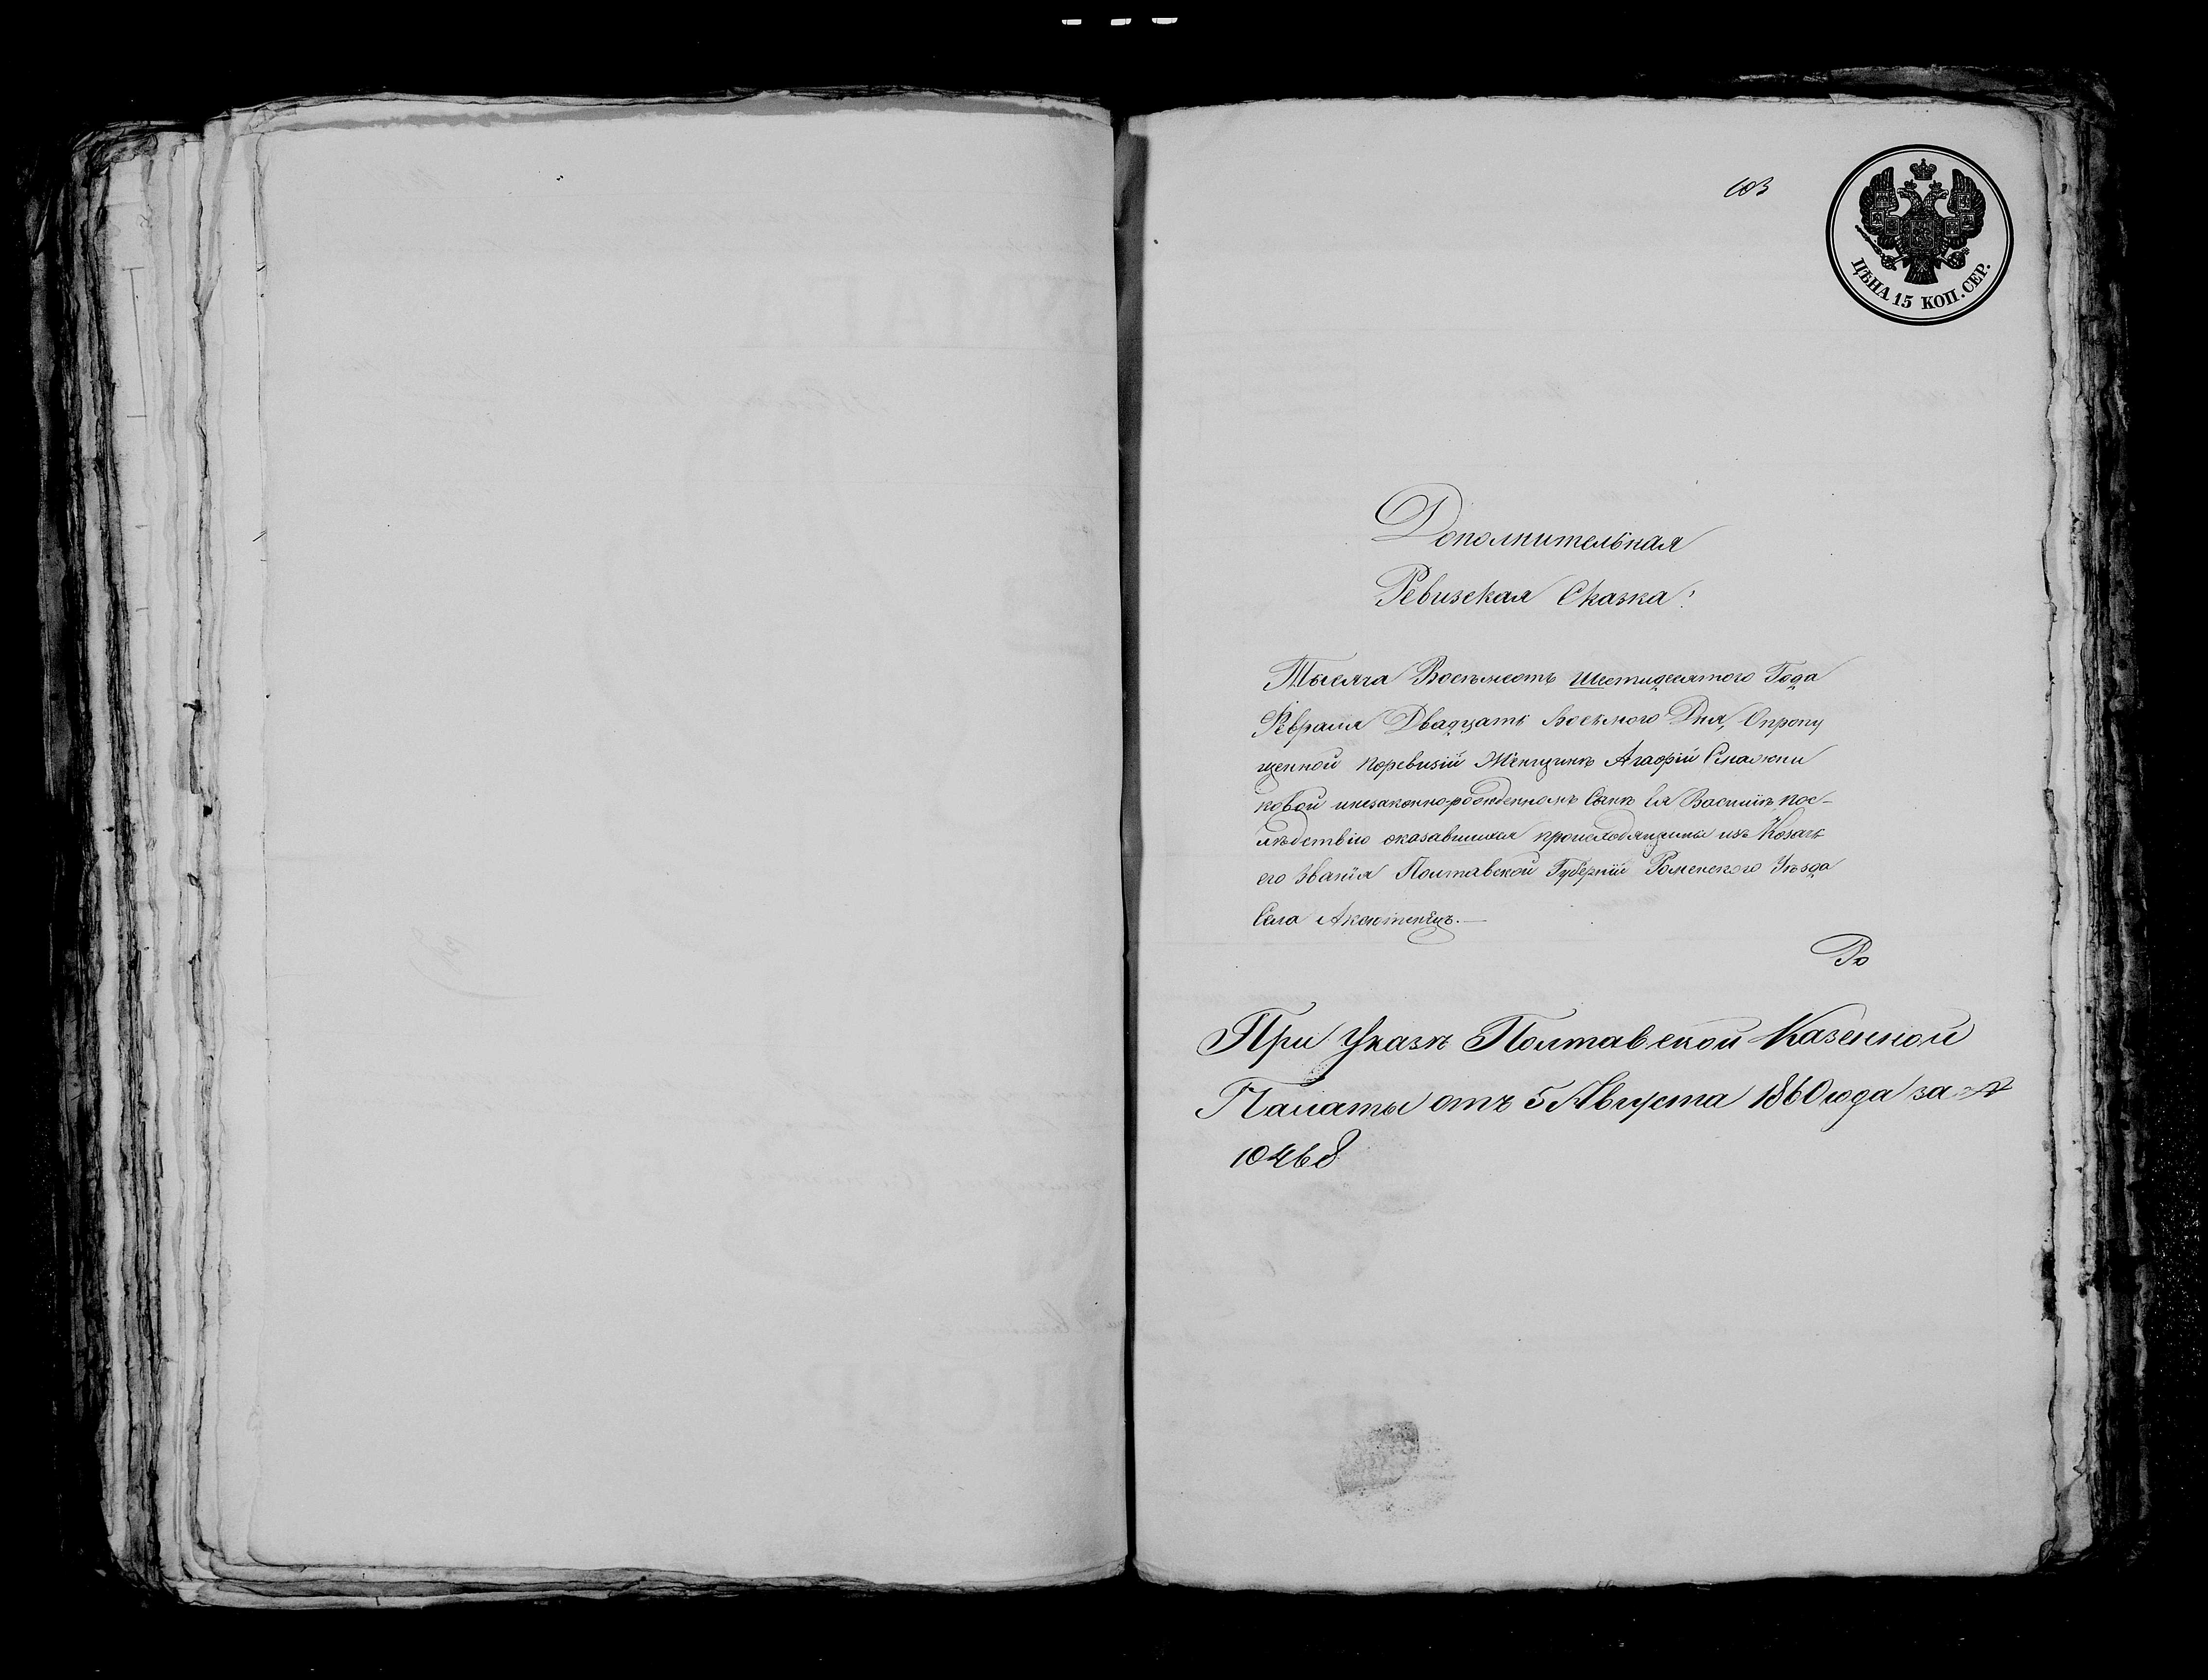 603
ЦѢНА 15 КОП. СЕР.
Дополнительная
Ревизская Сказка
Тысяча Восемьсотъ Шестидесятого Года
Февраля Двадцать Восьмого Дня, Опропу
щенной поревизіи Женщинѣ Агафіи
ковой инезаконно-рожденномъ Сынѣ Ея Василіѣ, пос-
лѣдствію оказавшихся происходящими изъ Козачь
его Званія Полтавской Губерніи Роменского Уѣзда
Села
При Указѣ Полтавской Казенной
Палаты отъ 5 Августа 1860 года за №
10468